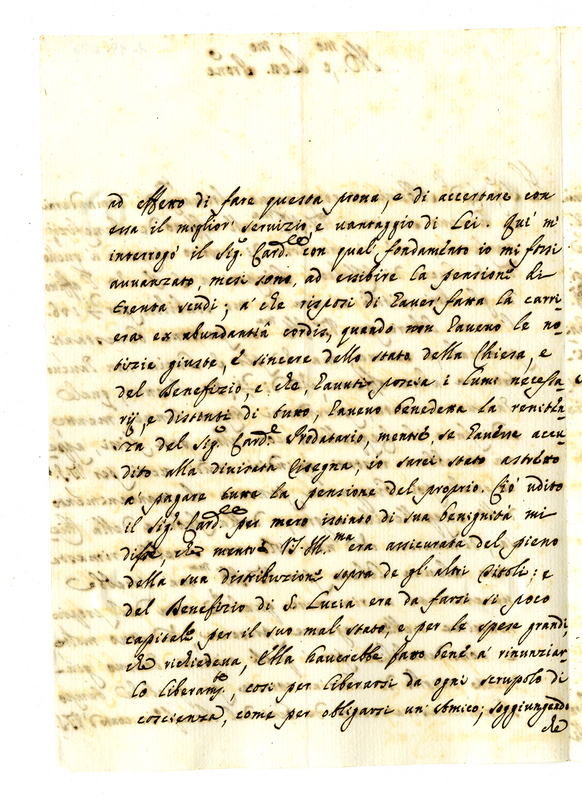 ad effetto di fare questa prova, e di accertare con
essa il miglior servizio, e vantaggio di Lei. Qui m'
interrogò il Sig.r Card.le con qual fondamento io mi fossi
avvanzato, mesi sono, ad essibire la pensione di
trenta scudi; a' che risposi di haver fatta la carri-
era ex abundantia cordis, quando non havevo le no-
tizie giuste, e sincere dello stato della Chiesa, e
del Benefizio, e che, havuti poscia i lumi necessa
rij, e distinti di tutto, havevo benedetta la reniten-
za del Sig.r Card.e Prodatario, mentre, se havesse accu-
dito alla divisata, io sarei stato astretto
a' pagare tutta la pensione del proprio. Ciò udito
il Sig.r Card.le per mero istinto di sua benignità mi
disse, che mentre V.S. Ill.ma era assicurata del pieno
della sua distribuzione sopra de gl'altri Titoli: e
del Benefizio di S. Lucia era da farsi sì poco
capitale per il suo mal stato, e per le spese grandi,
che richiedeva, Ella haverebbe fatto bene a' rinunziar-
lo liberam.te, così per liberarsi da ogni scrupolo di
coscienza, come per obligarsi un' Amico; soggiungendo
che